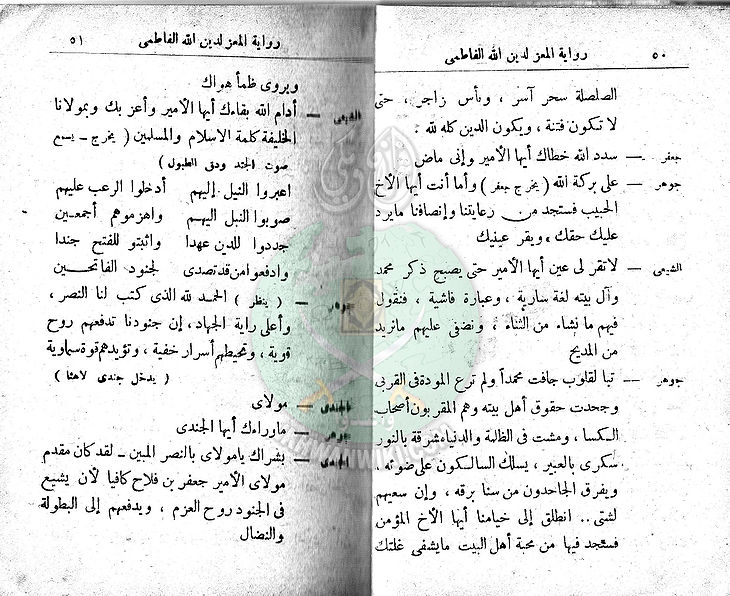 ٥٠ رواية المعز لدين الله الفاطمى
الصلصلة سحر آسر ، وبأس زاجر ، حتى
لا تكون فتنة ، ويكون الدين كله لله :
جعفر — سدد الله خطاك أيها الأمير وإنى ماض
جوهر — على بركة الله ( يخرج جعفر ) وأما أنت أيها الأخ
الحبيب فستجد من رعايتنا وإنصافنا ما يرد
عليك حقك ، ويقر عينيك
الشيعى — لا تقر لى عين أيها الأمير حتى يصبح ذكر محمد
وآل بيته لغة سارية ، وعبارة فاشية ، فنقول
فيهم ما نشاء من الثناء ، ونضفى عليهم ما نريد
من المديح
جوهر — تبا لقلوب جافت محمداً ولم ترع المودة فى القربى
وجحدت حقوق أهل بيته وهم المقربون أصحاب
الكسا ، ومشت فى الظلمة والدنيا شرقة بالنور
سكرى بالعبير ، يسلك السالكون على ضوئه ،
ويفرق الجاحدون من سنا برقه ، وإن سعيهم
لشتى .. انطلق إلى خيامنا أيها الأخ المؤمن
فستجد فيها من محبة أهل البيت ما يشفى غلتك
رواية المعز لدين الله الفاطمى ٥١
ويروى ظمأ هواك
الشيعى — أدام الله بقاءك أيها الأمير وأعز بك وبمولانا
الخليفة كلمة الاسلام والمسلمين ( يخرج – يسمع
صوت الجند ودق الطبول )
اعبروا النيل إليهم أدخلوا الرعب عليهم
صوبوا النبل اليهم واهزموهم أجمعين
جددوا للدين عهدا واثبتو للفتح جندا
وادفعوا من قد تصدى لجنود الفاتحين
جوهر — ( ينظر ) الحمد لله الذى كتب لنا النصر ،
وأعلى راية الجهاد ، إن جنودنا تدفعهم روح
قوية ، وتحيطهم أسرار خفية ، وتؤيدهم قوة سماوية
( يدخل جندى لاهثا )
الجندى — مولاى
جوهر — ما وراءك أيها الجندى
الجندى — بشراك يا مولاى بالنصر المبين – لقد كان مقدم
مولاى الأمير جعفر بن فلاح كافيا لأن يشيع
فى الجنود روح العزم ، ويدفعهم إلى البطولة
والنضال